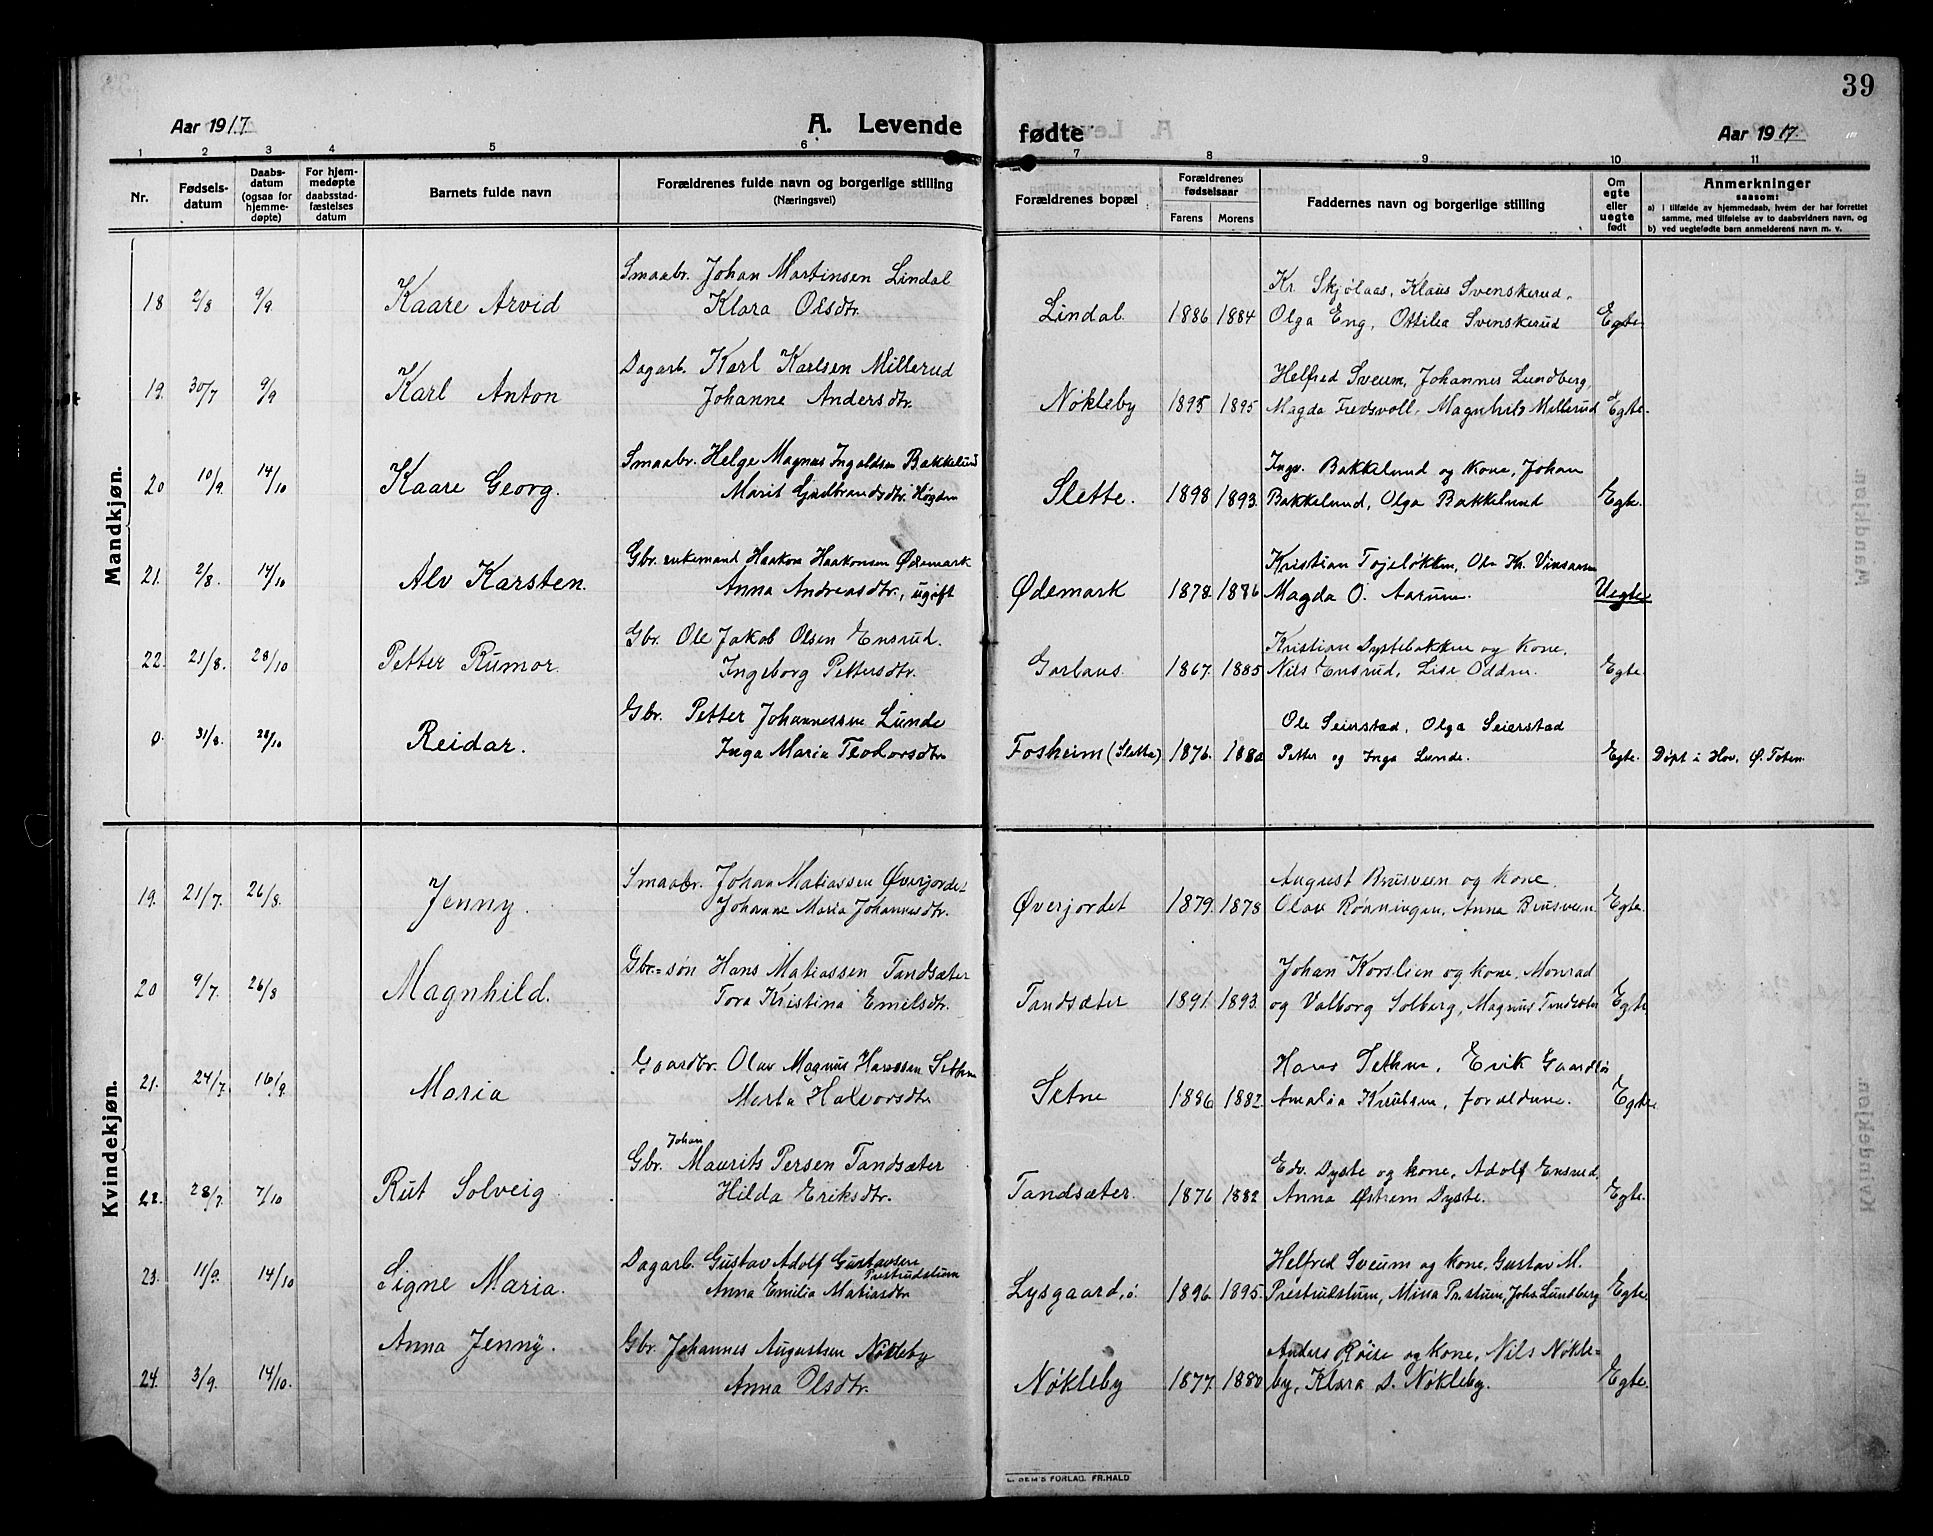 39
Aar 1917
A. Levende
fødte
Aar 1917.
1 2 3 4 5 6 7 8 9 10 11
Nr.
Fødsels-
datum
Daabs-
datum
(ogsaa for
hjemme-
døpte)
For hjem-
medøpte
daabsstad-
fæstelses
datum
Barnets fulde navn
Forældrenes fulde navn og borgerlige stilling
(Næringsvei)
Forældrenes bopæl
Forældrenes
fødselsaar
Farens Morens
Faddernes navn og borgerlige stilling
Om
egte
eller
uegte
født
Anmerkninger
saasom:
a) i tilfælde av hjemmedaab, hvem der har forrettet
samme, med tilføielse av to daabsvidners navn, og
b) ved uegtefødte barn anmelderens navn m. v.
Mandkjøn.
Smaabr. Johan Martinsen Lindal Kr. Skjølaas, Klaus Svenskerud,
18 2/8 9/9. Kaare Arvid Klara Olsdtr. Lindal. 1886 1884 Olga Eng, Ottilia Svenskerud Egte
Dagarb. Karl Karlsen Millerud Helfred Sveum, Johannes Lundberg,
19. 30/7 9/9 Karl Anton Johanne Andersdtr. Nøkleby 1895 1895 Magda Fredsvoll, Magnhild Millerud Egte.
Smaabr. Helge Magnus Ingvaldsen Bakkelund Ingv. Bakkelund og kone, Johan
20 10/9. 14/10 Kaare Georg. Marit Gudbrandsdtr. Høgden Slette. 1898 1893. Bakkelund, Olga Bakkelund Egte.
Gbr. enkemand Haakon Haakonsen Ødemark Kristian Tøjeløkken, Ole Kr.
21. 2/8. 14/10 Alv Karsten. Anna Andreasdtr., ugift Ødemark 1878. 1886 Magda O. Aarum. Uegte
Gbr. Ole Jakob Olsen Ensrud. Kristian Dystebakken og kone,
22. 21/8. 28/10 Petter Rumor. Ingeborg Pettersdtr. Garlaus. 1867. 1885 Nils Ensrud, Lise Odden. Egte.
Gbr. Petter Johannessen Lunde Ole Seierstad, Olga Seierstad
0. 31/8. 28/10 Reidar. Inga Maria Teodorsdtr. Fosheim (Sletta) 1876. 1880 Petter og Inga Lunde. Egte. Døpt i Hov, Ø. Toten.
Kvindekjøn.
Smaabr. Johan Matiassen Øverjordet August Brusveen og kone.
19. 21/7. 26/8. Jenny. Johanne Maria Johannesdtr. Øverjordet 1879. 1878 Olav Rønningen, Anna Brusveen Egte.
Gbr.=søn Hans Matiassen Tandsæter Johan Korslien og kone, Monrad
20 9/7. 26/8 Magnhild. Tora Kristina Emilsdtr. Tandsæter 1891. 1893. og Valborg Solberg, Magnus Tandsæter Egte
Gaardbr. Olav Magnus Hanssen Sethne Hans Sethne, Erik Gaardlø
21. 24/7. 16/9. Maria Marta Halvorsdtr Setne 1886 1882. Amalia Knutsen, forældrene. Egte
Johan
Gbr. Maurits Persen Tandsæter Edv. Dyste og kone, Adolf Ensrud,
22. 28/7. 7/10 Rut Solveig Hilda Eriksdtr. Tandsæter. 1876 1882 Anna Østrem Dyste. Egte.
Dagarb. Gustav Adolf Gustavsen Helfred Sveum og kone, Gustav M.
Prestrudstum
23. 11/9. 14/10 Signe Maria. Anna Emilia Matiasdtr Lysgaard, ø. 1896. 1895. Prestrudstum, Mina Pr.stum, Johs. Lundberg Egte.
Anna Jenny. Gbr. Johannes Augustsen Nøkleby Anders Röise og kone, Nils Nøkle=
24. 3/9. 14/10. Anna Olsdtr. Nøkleby 1877. 1880 by, Klara D. Nøkleby. Egte.
FORLAG. FR.HALD